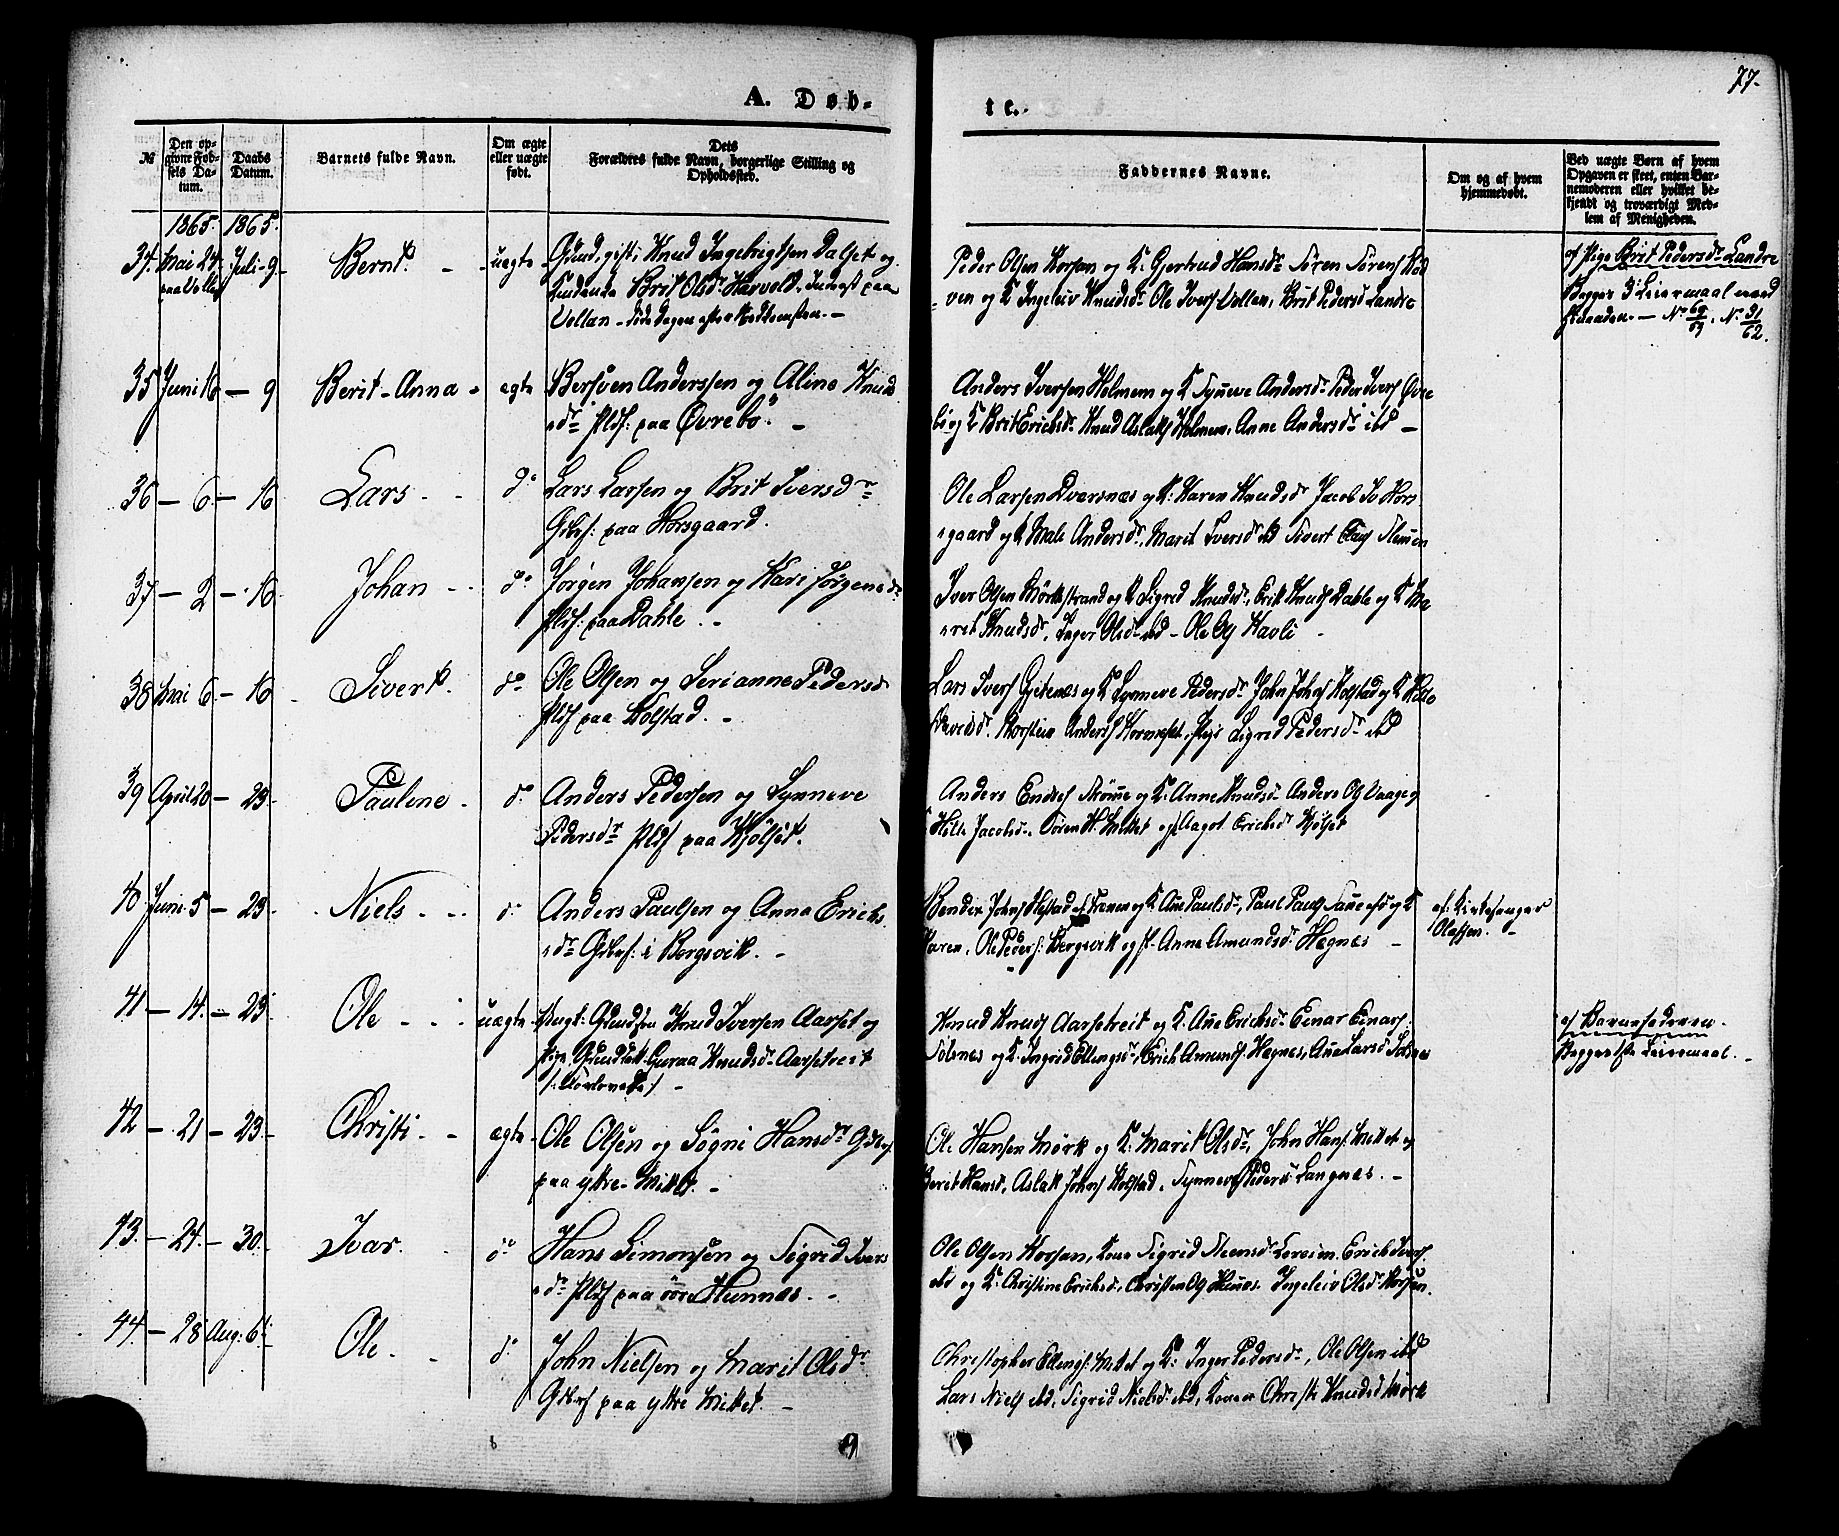 77.
A. Døb-
te.
№
Den op-
givne Fød-
sels Da-
tum.
Daabs
Datum.
Barnets fulde Navn.
Om ægte
eller uægte
født.
Dets
Forældres fulde Navn, borgerlige Stilling og
Opholdssted.
Faddernes Navne.
Om og af hvem
hjemmedøbt.
Ved uægte Børn af hvem
Opgaven er skeet, enten Bar-
nemoderen eller hvilket be-
kjendt og troværdigt Med-
lem af Menigheden.
1865. 1865.
34. Mai 24 Juli - 9 Bernt. uegte Gmd, gift, Knud Ingebrigtsen Dalset og
paa Vollan
Brit Olsdr Harvold, paa
Vollan
Peder Olsen Korsan og K. Gjertrud Hansdr Søren Sørens
ven og K Ingeleiv Knudsdr Ole Ivers Vollan, Brit Pedersd Landre
af Pige Brit Pedersdr Landre
Begges 3 Leiermaal med
hinanden. — No 69/59. No 31/62.
35 Juni 16 — 9 Berit-Anna - egte Bersven Anderssen og Aline Knud
sdr Pldsf: paa Øvrebø. —
Anders Iversen Holmem og K Synneve Andersdr Peder Ivers Øvre
bø og K Brit Erichsdr Knud Aslaks Holmem, Anne Andersdr ibd —
36 — 6 — 16 Lars - do Lars Larsen og Brit Iversdr
Gbrf: paa Horsgaard.
Ole Larsen Dversnæs og K: Karen Knudsdr Jacob Iv Hors
gaard og K Male Andersdr, Marit Iversd ibd Sivert
37 — 2 — 16 Johan - - do Jørgen Johansen og Kari Jørgensdr
Pldsf: paa Dahle. -
Iver Olsen Mörkestrand og K Sigrid Knudsdr, Erik Knuds Dahle og K Ma
rit Knudsdr, Inger Olsdr ibd - Ole
38 Mai 6 — 16 Sivert. do Ole Olsen og Serianne Pedersd
Pldsf paa Kolstad. -
Lars Ivers Gjetenæs og K Synneve Pedersdr John Johns Kolstad og K
Davidsdr. Thorstein Anders Horneset, Pige Sigrid Pedersdr ibd
39 April 20 — 23 Pauline - do Anders Pedersen og Synneve
Pedersdr Pldsf paa Kjölset.
Anders Endres Strømme og K: Anne Knudsdr Anders
Hille Jacobsdr. Søren H. Mittet og Aagot Erichsd Kjølset
40 Juni 5 — 23 Niels - - do Anders Paulsen og Anna Erichs
sdr Gbrf: i Bergsvik. -
Johns og K Ane Paulsdr, Paul Pauls og K
Karen. Ole Peders: Bergsvik og P. Anne Amundsdr Hegnæs —
af Kirkesanger
Olafsen. -
41 — 14. — 23 Ole - - uægte Ungk: Knud Iversen Aarset og
Pige Guroa Knudsdr Aarsetreit
/: Forlovede :/ -
Knud Knuds Aarsetreit og K. Ane Erichsdr Einar Einars:
Solsnes og K. Ingrid Ellingsdr, Erich Amunds. Hegnes, Ane Larsd Solsnes
af Barnefaderen.
Begges 1ste Leiermaal. -
42 — 21 — 23 Christi - - ægte Ole Olsen og Søgni Hansdr Gbrf
paa yttre-Mittet. -
Ole Hansen Mörk og K: Marit Olsdr, John Hans. Mittet og
Berit Hansd, Aslak Johns Kolstad, Synneve Pedersd Langnæs. -
43. — 24 — 30. Ivar. do Hans Simonsen og Sigrid Ivers
sdr Pldsf paa Hunnæs. -
Ole Olsen Korsan, Kone Sigrid Erich Ivers.
ibd og K: Christine Erichsdr, Christen Hunæs. Ingeleiv Olsdr Korsan.
44. — 28 Aug: 6 Ole. - do John Nielsen og Marit Olsdr
Gbrf paa yttre Mittet. -
Christopher Ellings. Mittet og K: Inger Pedersdr, Ole Olsen ibd
Lars Niels ibd, Sigrid Nielsdr ibd, Christi Knudsd Mörk